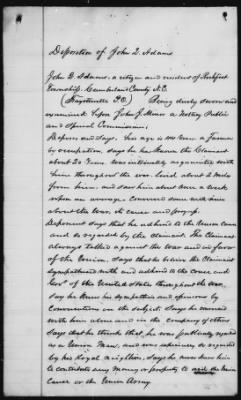 Deposition of John Q. Adams
John Q. Adams, a citizen and resident of Rockfish
Township Cumberland County N.C.
(Fayetteville P.O.) Being duly sworn and
examined before John G. Minor a Notary Public
and Special Commissioner,
Deposes and Says: his age is 44 Years a Farmer
by occupation, says he has known the Claimant
about 20 Years. was intimately acquainted with
him throughout the war. lived about 2 miles
from him, and saw him about once a week
upon an average. Conversed some with him
about the War, its cause and progress.
Deponent says that he adhered to the Union cause
and so regarded by the claimant. The Claimant
always talked against the War and in favor
of the Union. Says that he believes the Claimant
Sympathized with and adhered to the cause and
Govt of the United States throughout the war.
Say he knew his sympathies and opinions by
Conversation on the subject. Says he conversed
with him alone and in the company of others
Says that he thinks that he was publicly reputed
as a Union Man, and was so regarded
by his loyal neighbors, Says he never knew him
to contribute any money or property to aid the Union
Cause or the Union Army.